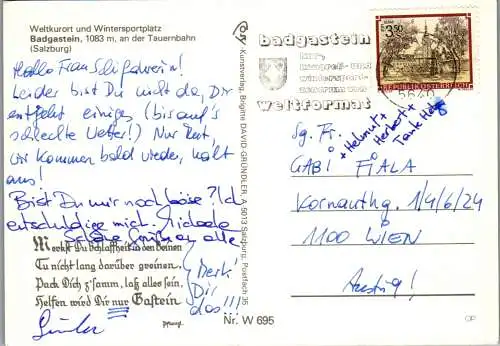 Weltkurort und Wintersportplatz
Badgastein, 1083 m, an der Tauernbahn
(Salzburg)
Hallo Frau
Leider bist Du nicht da, Dir
entgeht einiges (bis auf's
schlechte Wetter!) Nur Rest,
wir kommen bald wieder, halt
aus!
Bist Du mir noch böse? Ich
entschuldige mich.
Schöne Grüße an alle
Merkst Du Schlaffheit in den Beinen
Tu nicht lang darüber greinen,
Pack Dich z'samm, laß alles sein,
Helfen wird Dir nur Gastein
(Merk'
Dir
das!!!
Günter
Kunstverlag, Brigitte DAVID-GRÜNDLER, A 5013 Salzburg, Postfach 35
Nr. W 695
badgastein
kur,
weltformat
5640
3.50
REPUBLIK ÖSTERREICH
+ Helmut +
Herbert +
Tante
Sg. Fr.
GABI FIALA
Kornauthg. 1/4/6/24
1100 WIEN
Austria!